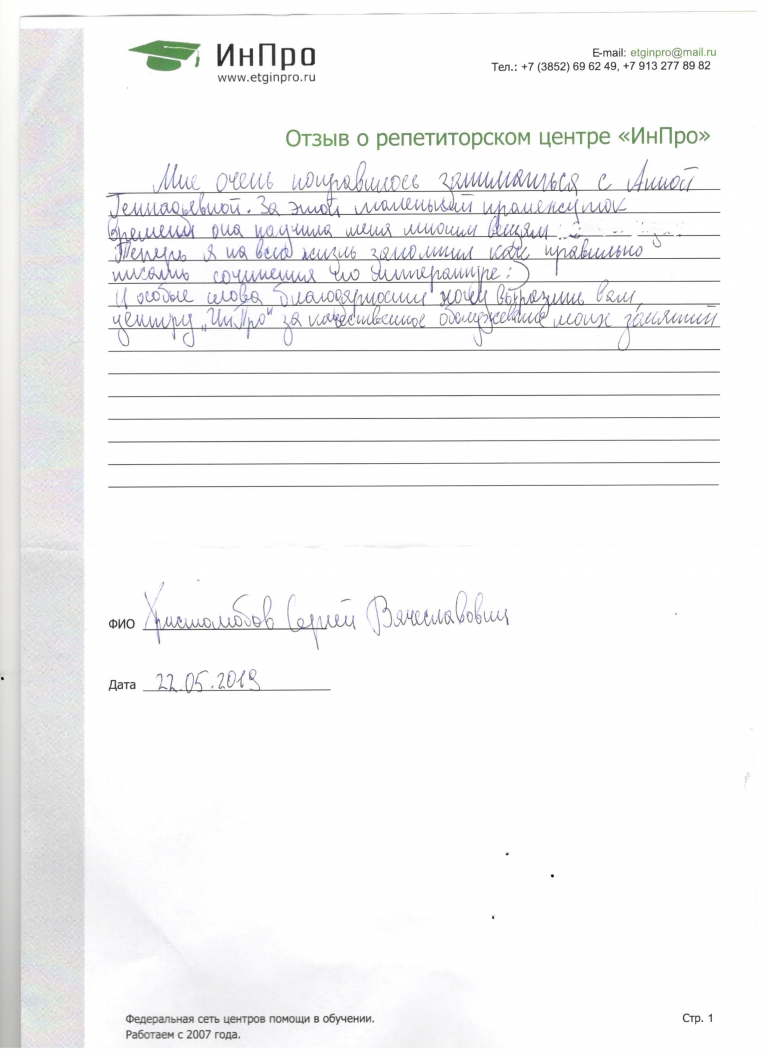 ИнПро
www.etginpro.ru
E-mail: etginpro@mail.ru
Тел.: +7 (3852) 69 62 49, +7 913 277 89 82
Отзыв о репетиторском центре «ИнПро»
Мне очень понравилось заниматься с Анной
Геннадьевной. За этот маленький промежуток
времени она научила меня многим вещам.
Теперь я на всю жизнь запомнил как правильно
писать сочинения по литературе:)
И особые слова благодарности хочу выразить вам,
центру „ИнПро" за качественное обслуживание моих занятий
ФИО Христолюбов Сергей Вячеславович
Дата 22.05.2019
Федеральная сеть центров помощи в обучении.
Работаем с 2007 года.
Стр. 1